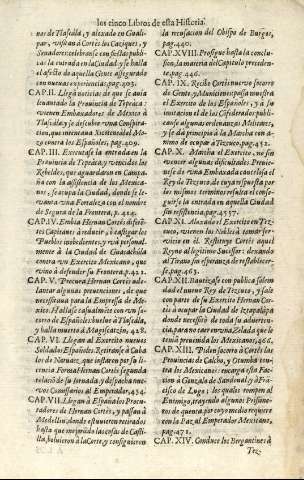 los cinco Libros de esta Historia.
nos de Tlascála, y aloxado en Gualipar, visitan à Cortés los Caziques, y
Senadores: celebranse con fiestas publicas la entrada en la Ciudad: y se halla
el afecto de aquella Gente assegurado
con nuevas experiencias, pag. 403.
CAP. II. Llegá noticias de que se avia
levantado la Provincia de Tepeaca:
vienen Embaxadores de Mexico à
Tlascála; y se descubre vna Conspiracion, que intentava Xicotencal el Mozo contra los Españoles, pag. 409.
CAP. III. Executase la entrada en la
Provincia de Tepeaca; y vencidos los
Rebeldes, que aguardaron en Campaña con la assistencia de los Mexicanos, se ocupa la Ciudad, donde se levanta vna Fortaleza con el nombre
de Segura de la Frontera, p. 414.
CAP. IV. Embia Hernan Cortés diferentes Capitanes à reducir, ò castigar los
Pueblos inobedientes; y và personalmente à la Ciudad de Guacachúla
contra vn Exercito Mexicano, que
vino à defender su Frontera, p. 421.
CAP. V. Procura Hernan Cortés adelantar algunas prevenciones, de que
necessitava para la Empressa de Mexico. Hallase casualmente con vn socorro de Españoles: buelve à Tlascála,
y halla muerto à Magiscatzin, 428.
CAP. VI. Llegan al Exercito nuevos
Soldados Españoles. Retiranse à Cuba
los de Narvaez, que instaron por su licencia. Forma Hernan Cortés segunda
relacion de su Jornada, y despacha nuevos Comissarios al Emperador, 434.
CAP. VII. Llegan à España los Procuradores de Hernan Cortés, y passan à
Medellin, donde estuvieron retirados
hasta que mejoradas las cosas de Castilla, bolvieron à la Corte, y consiguieron
la recusacion del Obispo de Burgos,
pag. 440.
CAP. XVIII. Prosigue hasta la conclusion, la materia del Capitulo precedente. pag. 446.
CAP. IX. Recibe Cortés nuevo socorro
de Gente, y Municiones: passa muestra
el Exercito de los Españoles, y à su
imitacion el de los Confederados: publicanse algunas ordenanzas Militares;
y se dà principio à la Marcha con animo de ocupar à Tezcuco, 452.
CAP. X. Marcha el Exercito, no sin
vencer algunas dificultades. Previenese de vna Embaxada cautelosa el
Rey de Tezcuco, de cuya respuesta por
los mismos terminos, resulta el conseguirse la entrada en aquella Ciudad
sin resistencia, pag. 457.
CAP. XI. Aloxado el Exercito en Tezcuco, vienen los Nobles à tomar servicio en èl. Restituye Cortés aquel
Reyno al legitimo Sucessor: dexando
al Tirano sin esperanza de restablecerse, pag. 463.
CAP. XII. Bautizase con publica solemnidad el nuevo Rey de Tezcuco; y sale
con parte de su Exercito Hernan Cortés à ocupar la Ciudad de Iztapalapa
donde necessitò de toda su advertencia, para no caer en vna Zelada que le tenian prevenida los Mexicanos, 466.
CAP. XIII. Piden socorro à Cortés las
Provincias de Chalco, y Otumba contra los Mexicanos: encarga esta Faccion à Gonzalo de Sandoval y à Francisco de Lugo; los quales rompen al
Enemigo, trayendo algunos Prisioneros de quenta por cuyo medio requiere
con la Paz al Emperador Mexicano,
pag. 471.
CAP. XIV. Conduce los Bergantines à
Tez-